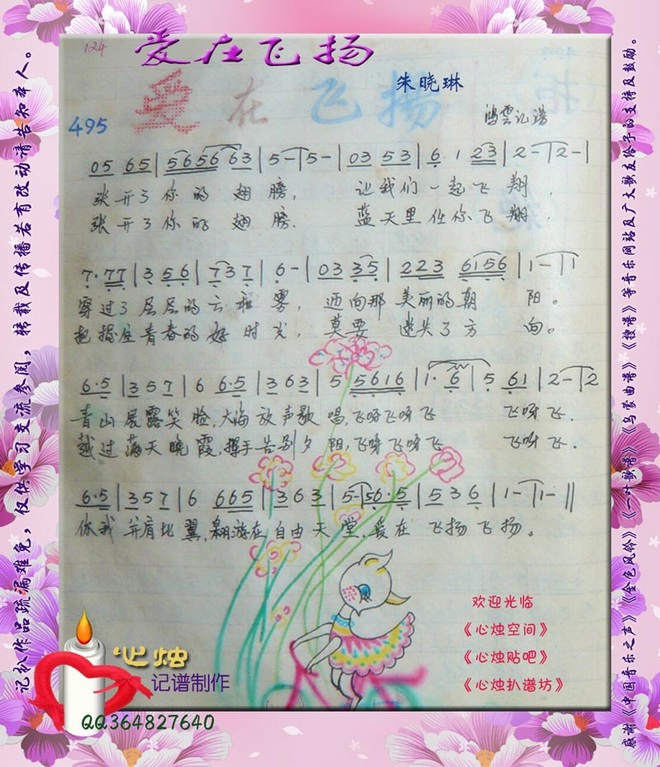 124
爱在飞扬
爱在飞扬
朱晓琳
495
鸿雲记谱
05 65 | 565656 63 | 5 - | 5 - | 03 53 | 6 1 23 | 2 - | 2 - |
张开了你的翅膀, 让我们一起飞翔,
张开了你的翅膀, 蓝天里任你飞翔,
7·77 | 3 56 | 7 3 7 | 6 - | 03 35 | 223 6156 | 1 - | 1
穿过了层层的云和雾, 迎向那美丽的朝阳。
把握住青春的好时光, 莫要迷失了方向。
6·5 | 357 | 6 6·5 | 363 | 5 5616 | 1· 6 | 5 61 | 2 - | 2
青山展露笑脸,大海放声歌唱,飞呀飞呀飞 飞呀飞.
越过满天晚霞,挥手告别夕阳,飞呀飞呀飞 飞呀飞.
6·5 | 357 | 6 665 | 363 | 5 - | 56·5 | 536 | 1 - | 1 - ||
你我并肩比翼,翱游在自由天堂,爱在飞扬飞扬。
欢迎光临
《心烛空间》
《心烛贴吧》
《心烛扒谱坊》
心烛
记谱制作
QQ364827640
记扒作品疏漏难免,仅供学习交流参阅,转载及传播若有改动请告知本人。
感谢《中国音乐之声》《金色风铃》《一叶歌谱》《乌蒙曲谱》《搜谱》等音乐网站及广大歌友给予的支持及鼓励。